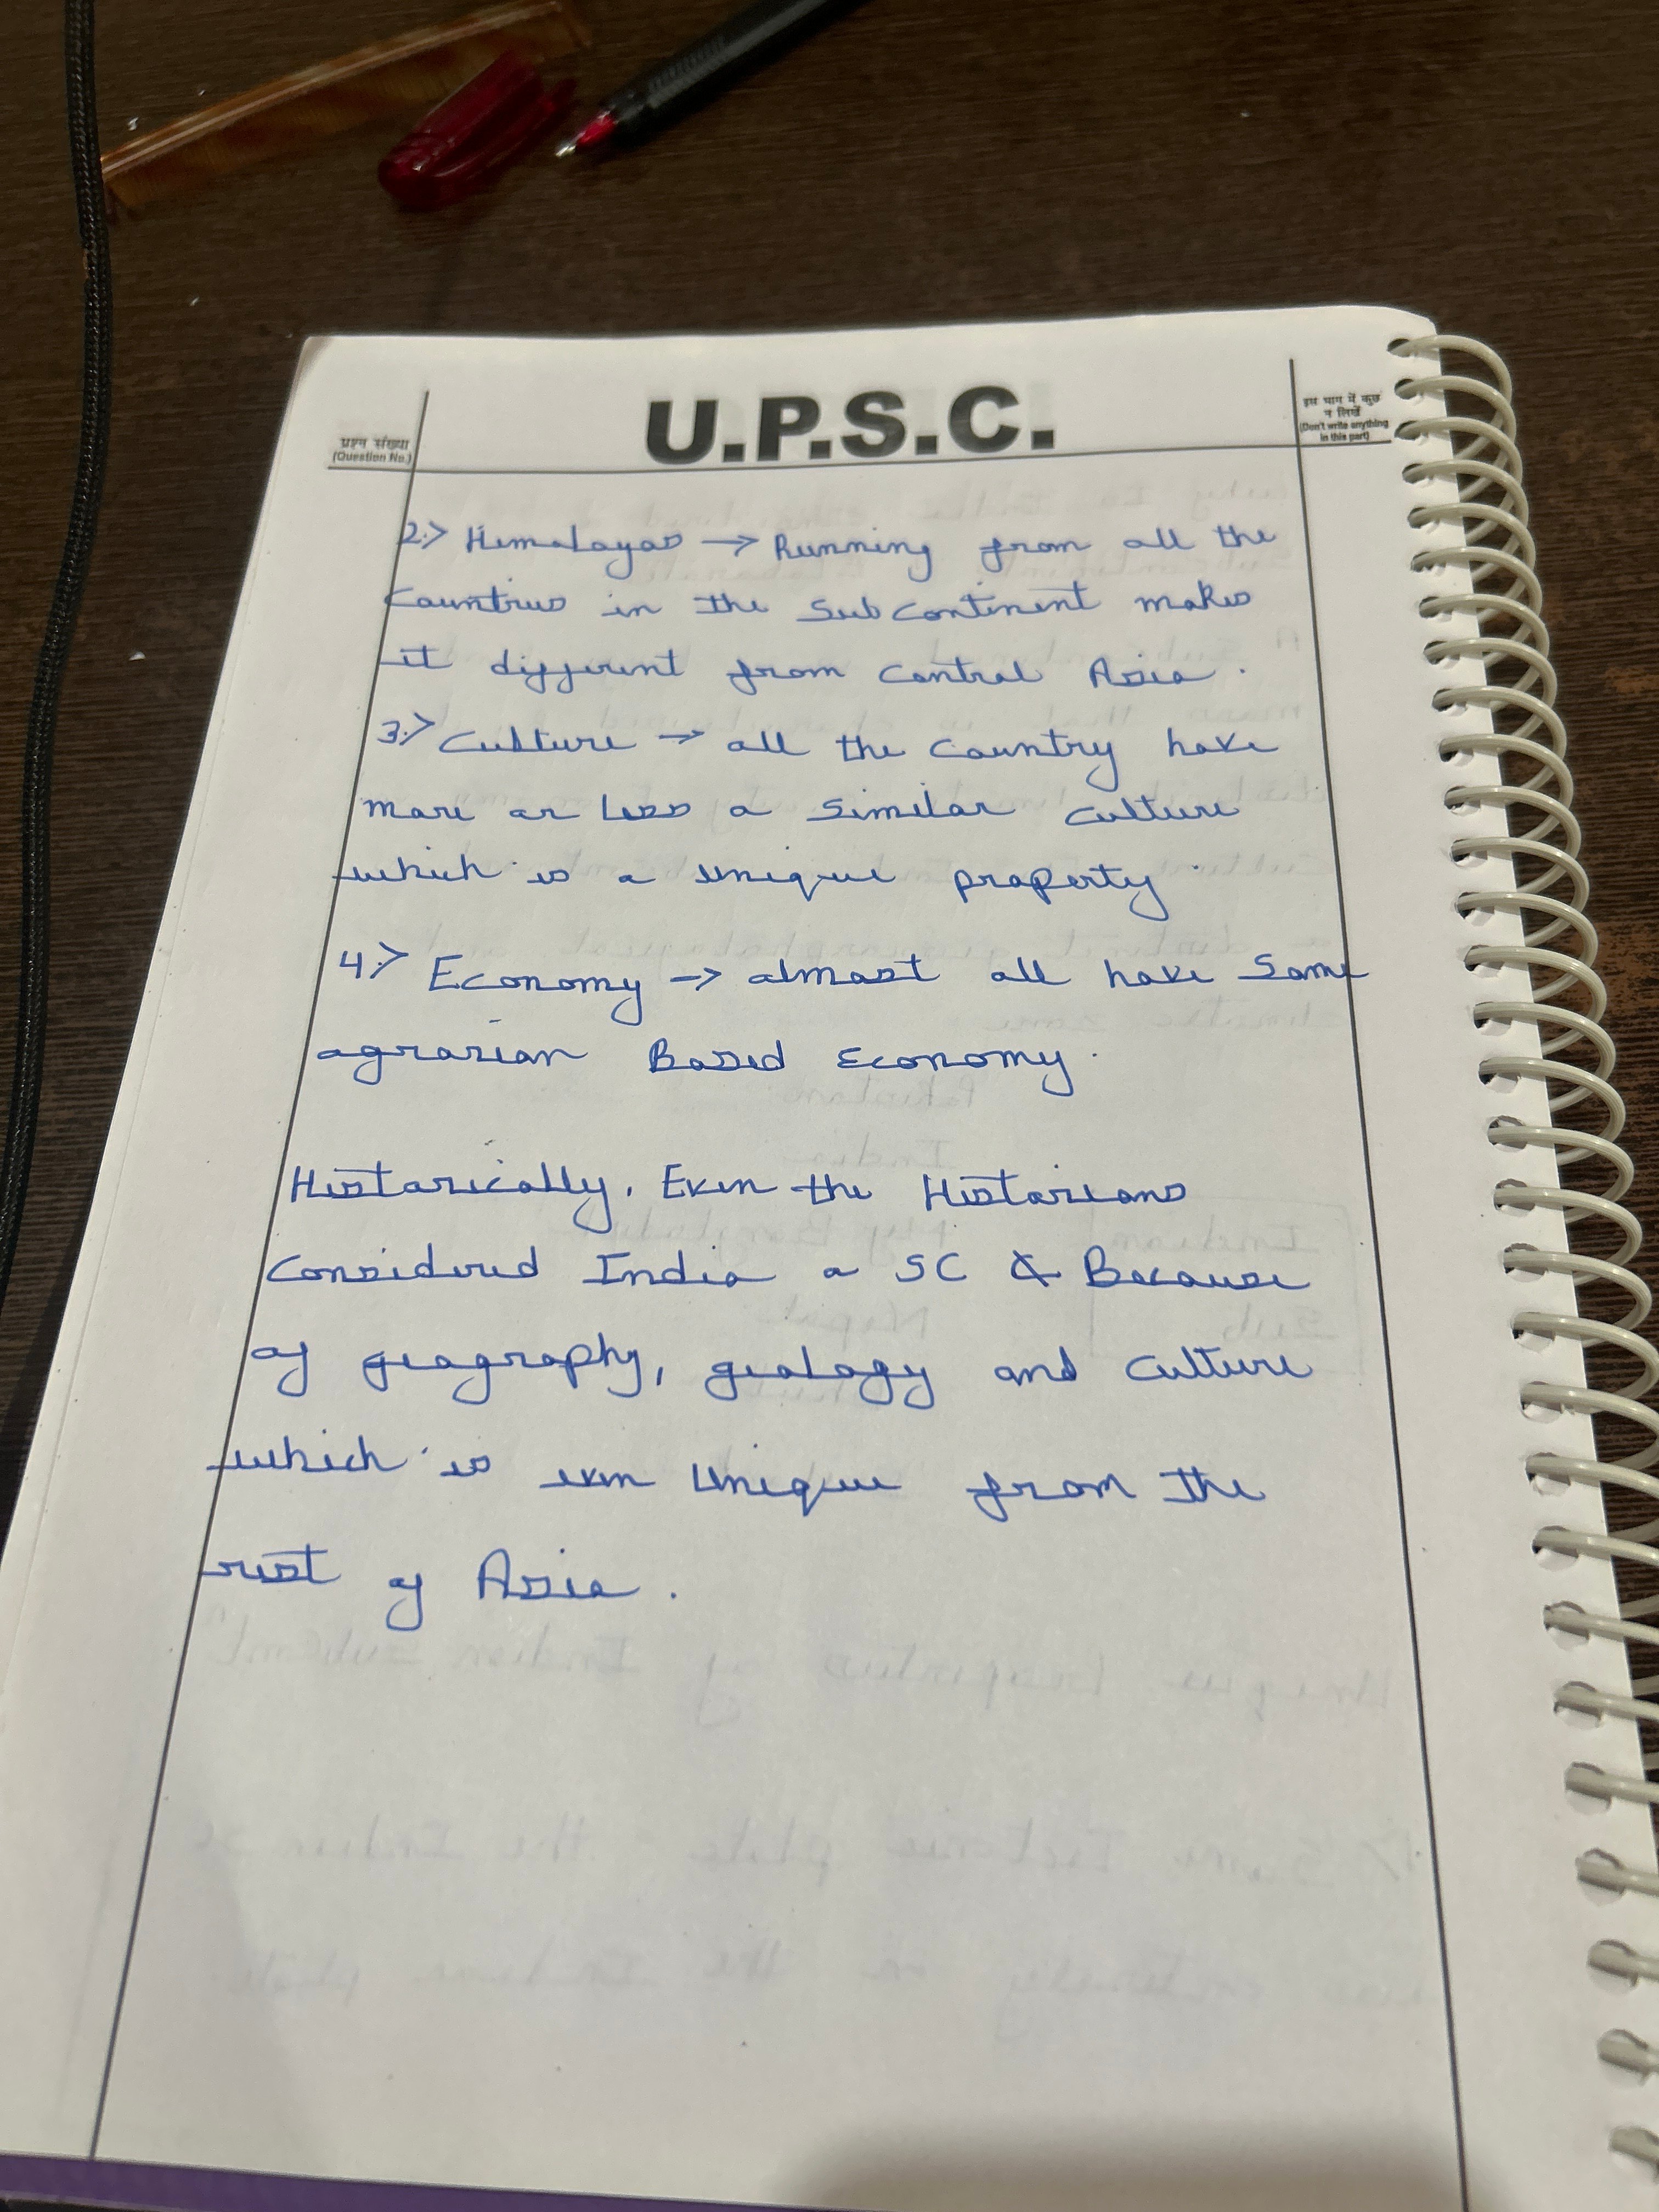 U.P.S.C.
प्रश्न संख्या
(Question No.)
इस भाग में कुछ
न लिखें
(Don't write anything
in this part)
2:> Himalayas → Running from all the
Countries in the Sub Continent makes
it different from Central Asia.
3:> Culture → all the Country have
more or less a similar culture
which is a unique property.
4:> Economy → almost all have same
agrarian Based Economy.
Historically, Even the Historians
Considered India a SC & Because
of geography, geology and culture
which is even unique from the
rest of Asia.